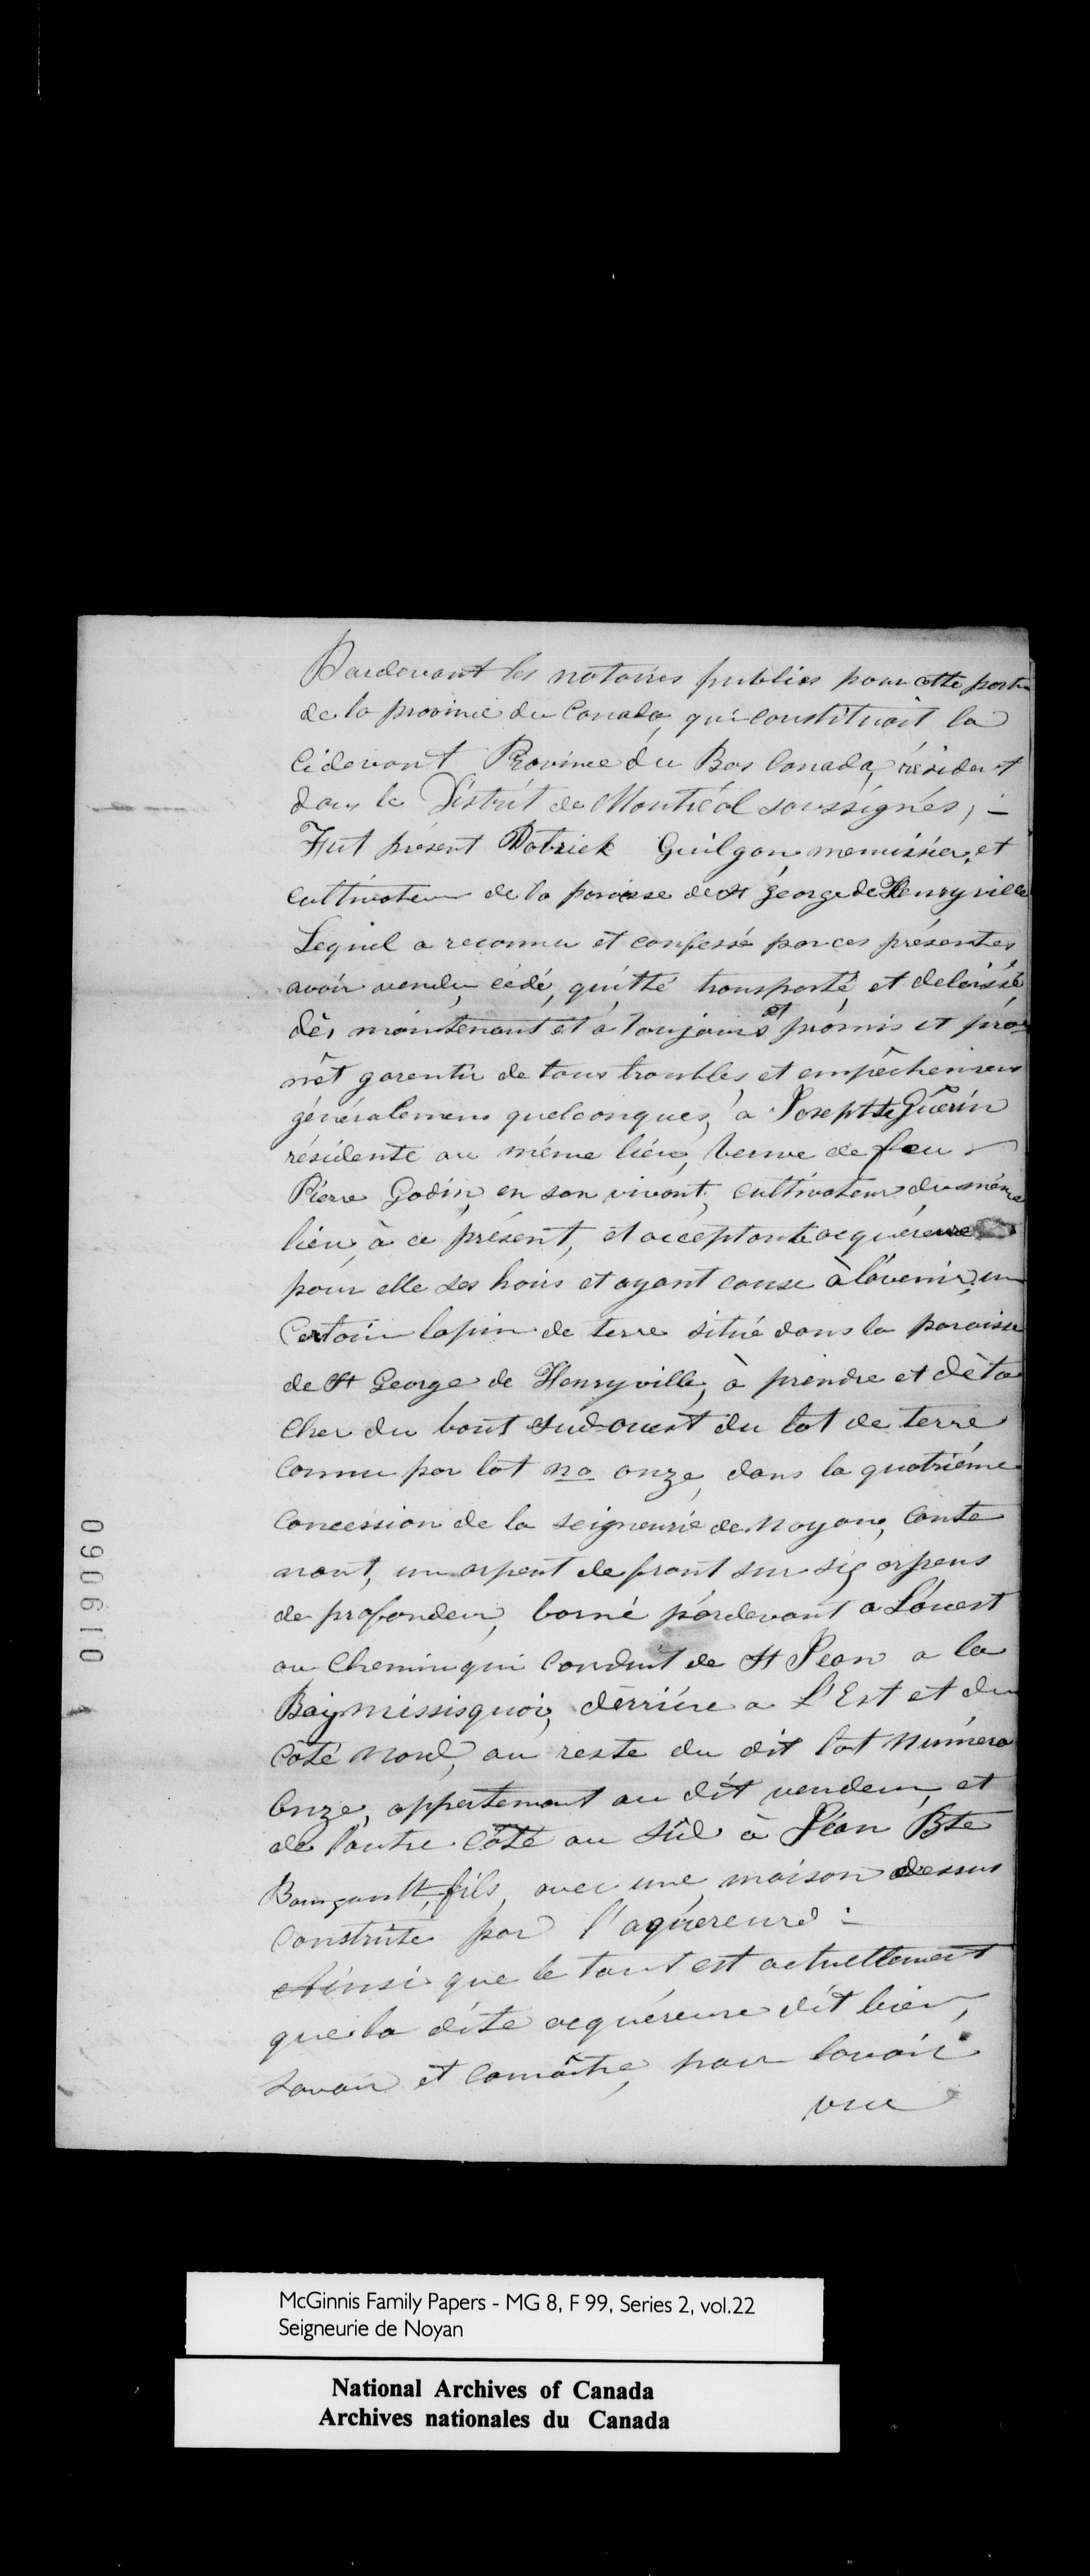 Pardevant les notaires publics pour cette partie
de la province du Canada, qui constituait la
cidevant Province du Bas Canada, résident
dans le District de Montréal soussignés; –
Fut présent Patrick Guilgan, menuisier, et
cultivateur de la paroisse de St George de Henryville
Lequel a reconnu et confessé par ces présentes,
avoir vendu, cédé, quitté transporté, et delaissé,
dès maintenant et à toujours et promis et pro=
mêt garentir de tous troubles, et empêchemens
généralemens quelconques, à Josephte Guérin
résidente au même lieu, veuve de feu
Pierre Godin, en son vivant, cultivateur du même
lieu, à ce présent, et acceptante acquéreure
pour elle ses hoirs et ayant cause à l'avenir, un
Certain lapin de terre situé dans la paroisse
de St George de Henryville, à prendre et déta
cher du bout sud-ouest du lot de terre
connu par lot no onze, dans la quatriéme
Concession de la seigneurie de Noyan, conte
nant, un arpent de front sur six arpens
de profondeur, borné pardevant a L'ouest
au Chemin qui conduit de St Jean a la
Bay Missisquoi, derrière a L'Est et du
Côté Nord, au reste du dit lot Numéro
Onze, appartenant au dit vendeur, et
de l'autre côté au Sud à Jean Bte
fils, avec une maison dessus
construite par l'aquereure :
Ainsi que le tout est actuellement
que la dite acquéreure dit bien,
savoir et connaître, pour l'avoir
vue
019060
McGinnis Family Papers - MG 8, F 99, Series 2, vol.22
Seigneurie de Noyan
National Archives of Canada
Archives nationales du Canada